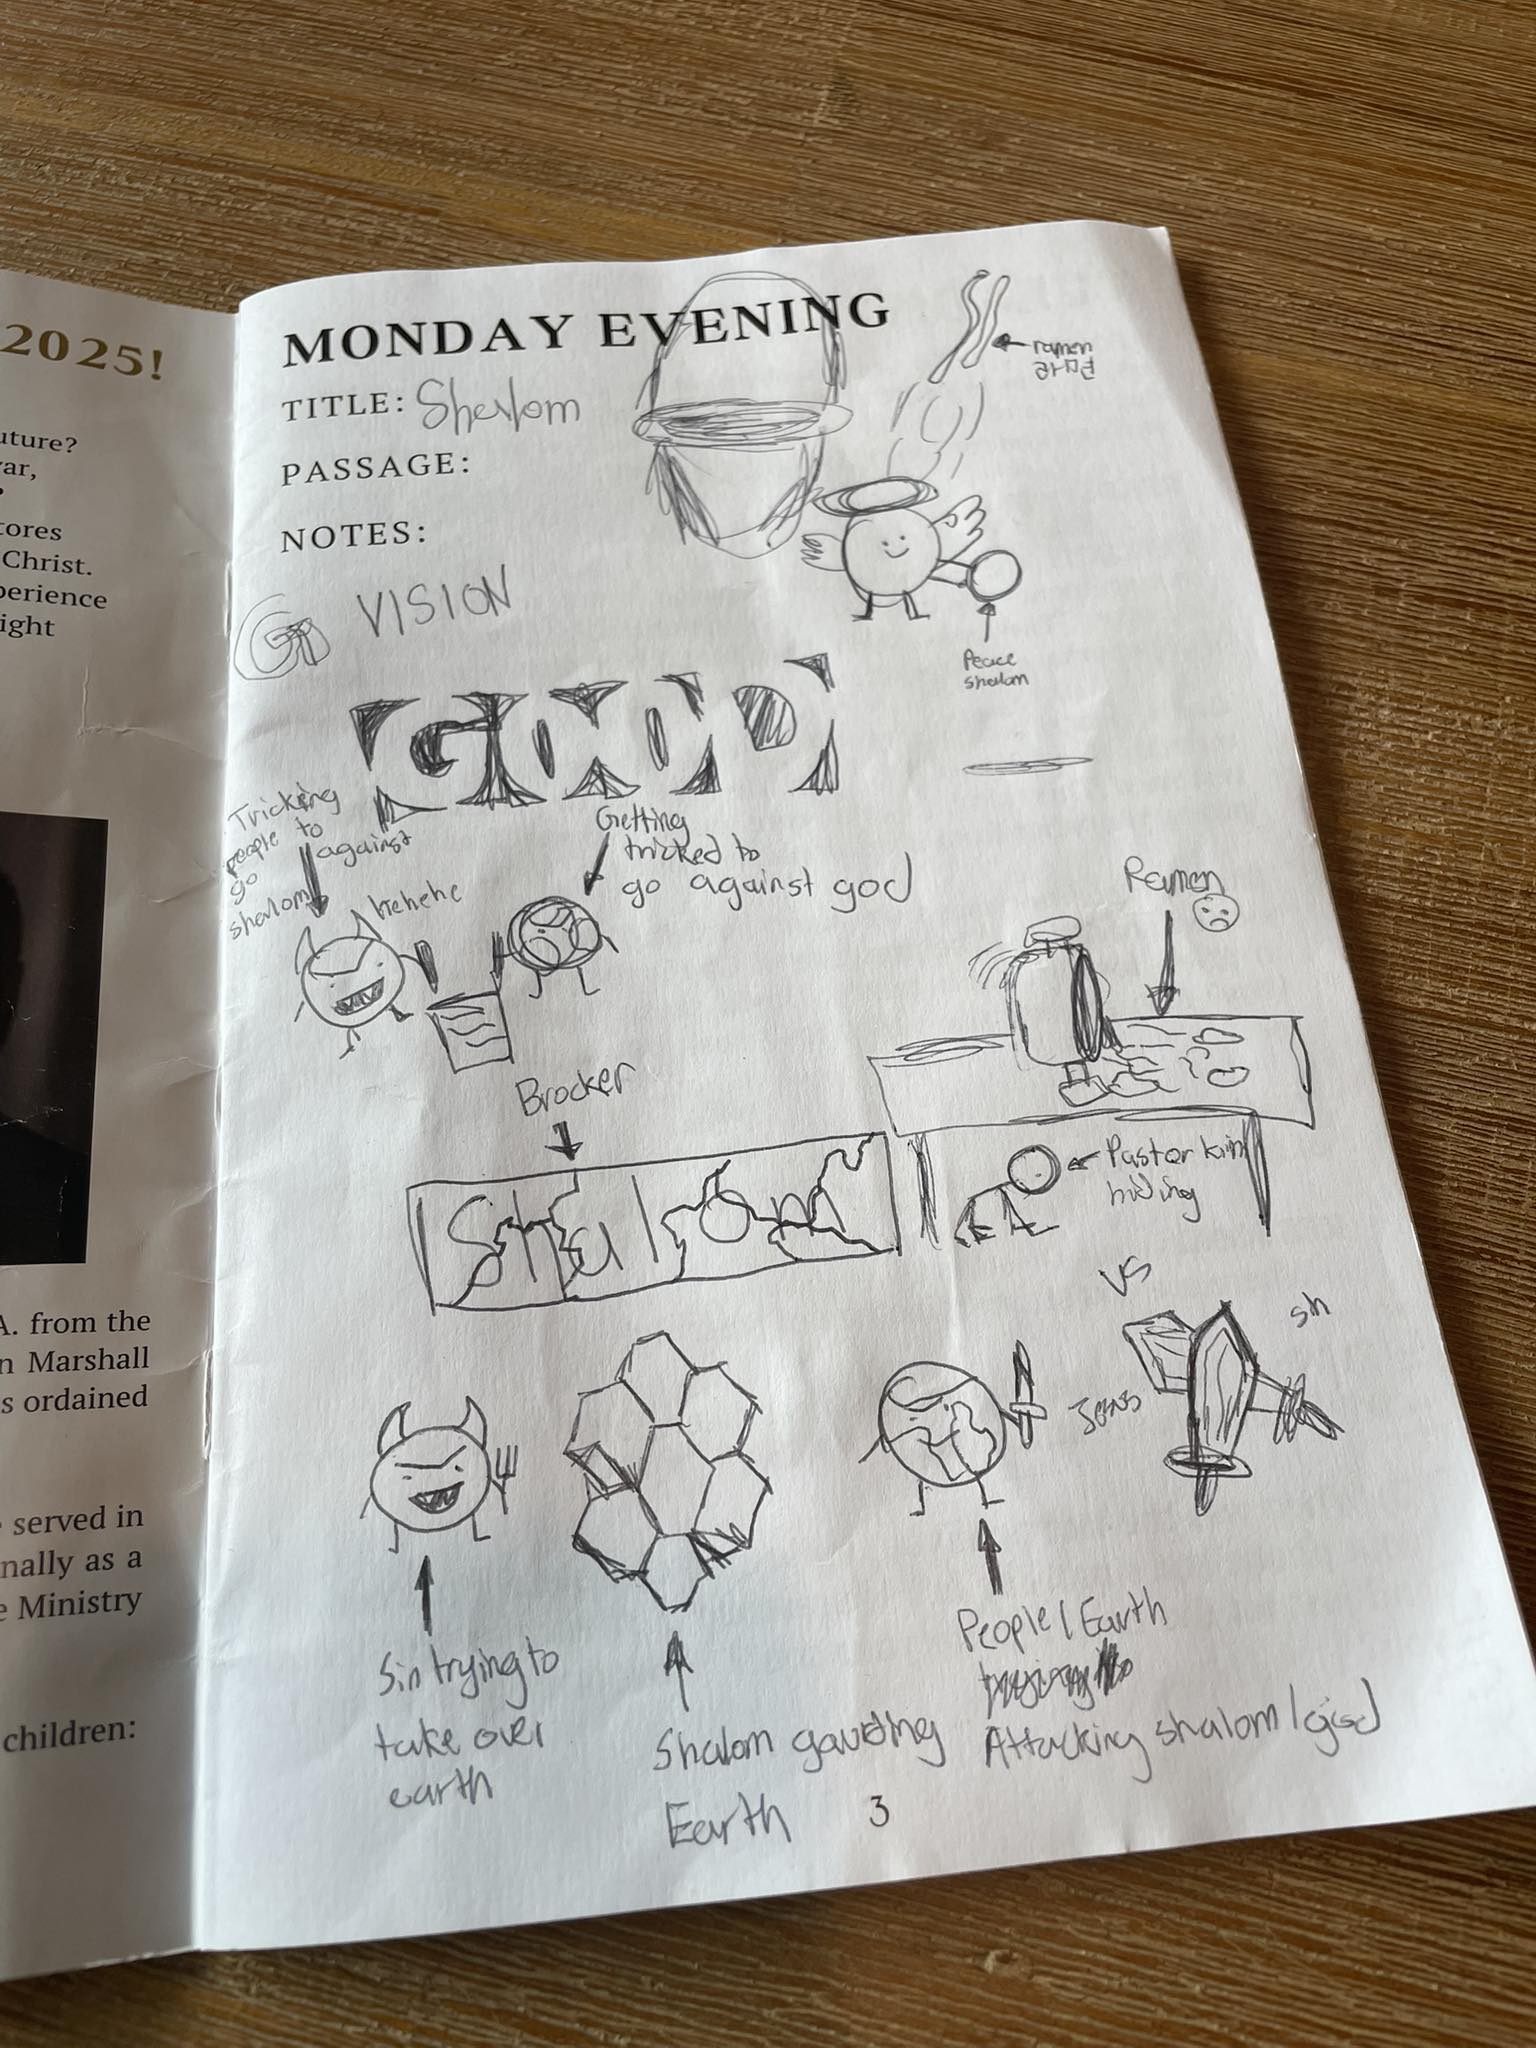 2025!
uture?
ar,
tores
Christ.
perience
ight
A. from the
n Marshall
s ordained
served in
nally as a
e Ministry
children:
MONDAY EVENING
TITLE: Shalom
PASSAGE:
NOTES:
ramen
라면
Peace
shalom
G
VISION
GOOD
Tricking
people to
go against
shalom
hehehe
Getting
tricked to
go against god
Ramen
Brocker
Shalom
Pastor kim
hiding
VS
sh
Jesus
Sin trying to
take over
earth
Shalom gaurding
Earth
People / Earth
Attacking shalom / god
3